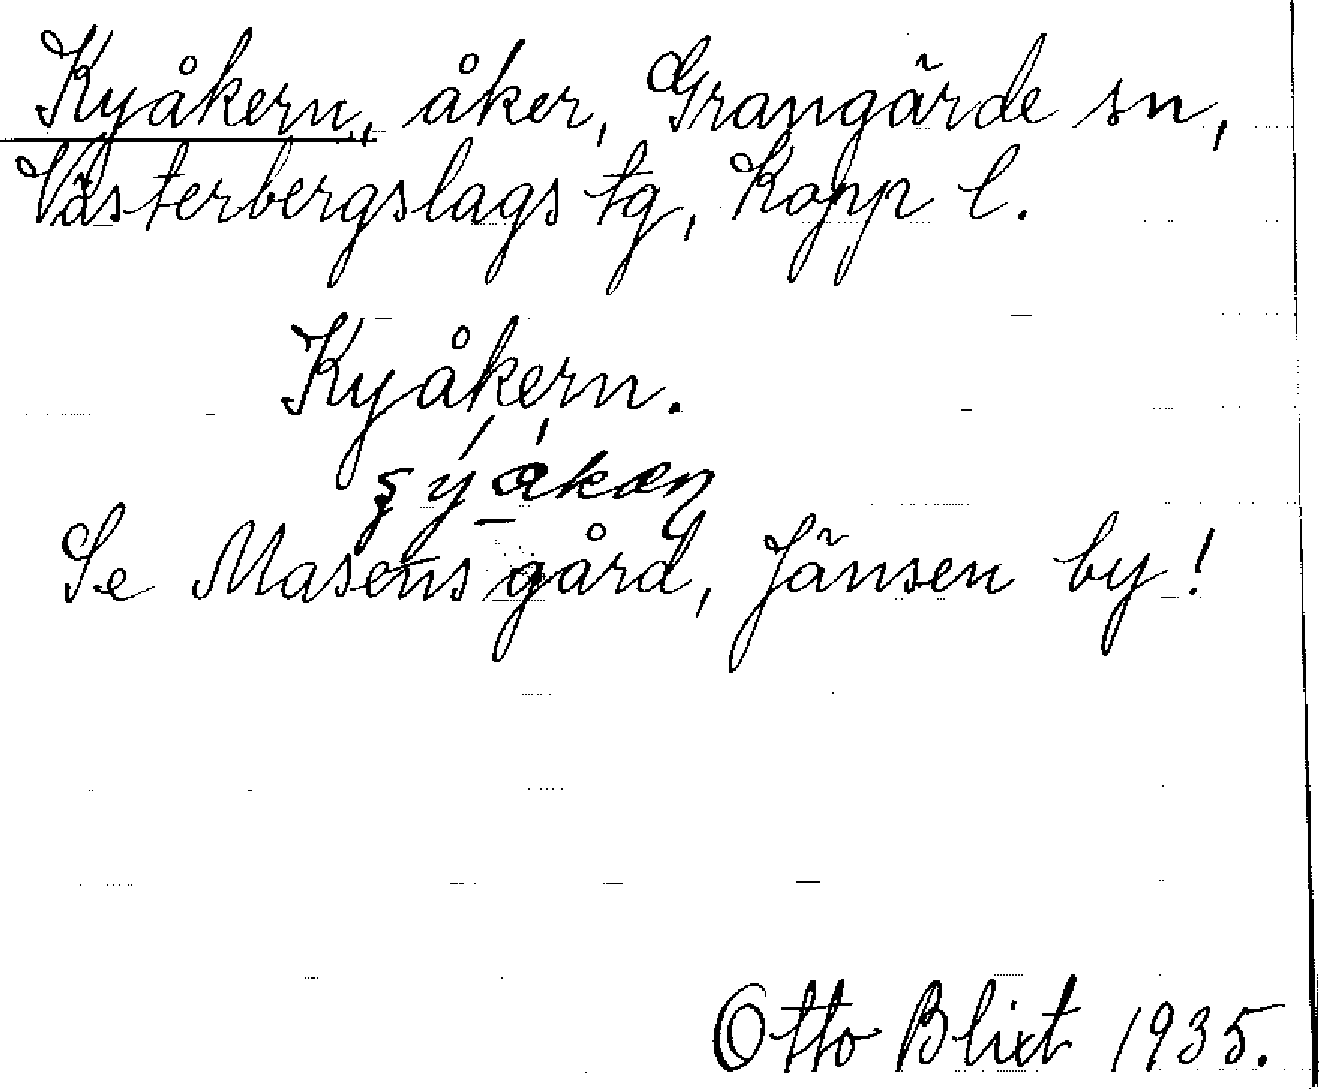 Kyåkern, åker, Grangärde sn,
Västerbergslags tg, Kopp l.
Kyåkern.
Se Masens gård, Jänsen by!
Otto Blixt 1935.